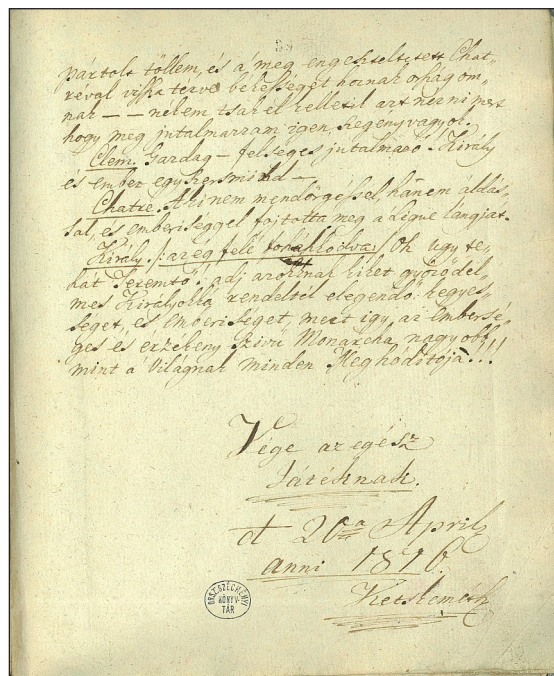 pártolt töllem, és a' meg engeszteltetett Chat,,
réval vissza térve békességet hoznak országom,,
nak — — nékem tsak el kelletik azt nézni mert
hogy meg jutalmazzam igen szegény vagyok.
Clem. Gazdag — felséges jutalmazó! Király
és ember egyszersmind —
Chatre. A ki nem mendörgéssel, hanem áldás,,
sal, és emberiséggel fojtotta meg a Ligue lángját.
Király. /: az ég felé :/ Oh ugy te,,
hát Teremtő! adj azoknak kiket győzödel,,
mes Királyokká rendeltél elegendő kegyes,,
séget, és emberiséget, mert igy, az embersé,,
ges és érzékeny szivű Monarcha nagyobb
mint a Világnak minden Meghóditója!!!
Vége az egész
Játéknak.
d 20a April
anni 1816.
Ketskeméth
ORSZ. SZÉCHÉNYI
KÖNYV-
TÁR